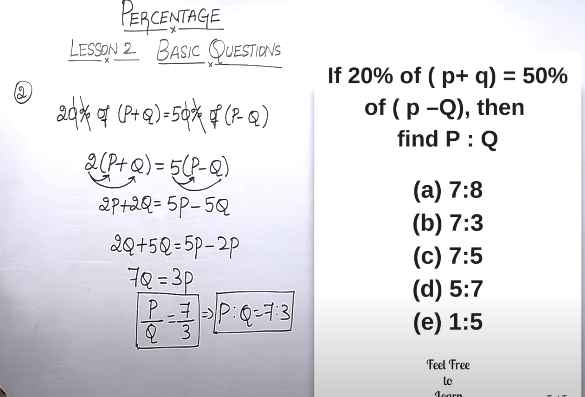 PERCENTAGE
LESSON 2 BASIC QUESTIONS
② 20% of (P+Q)=50% of (P-Q)
2(P+Q)=5(P-Q)
2P+2Q=5P-5Q
2Q+5Q=5P-2P
7Q=3P
P/Q=7/3 ⇒ P:Q=7:3
If 20% of ( p+ q) = 50%
of ( p –Q), then
find P : Q
(a) 7:8
(b) 7:3
(c) 7:5
(d) 5:7
(e) 1:5
Feel Free
to
Learn